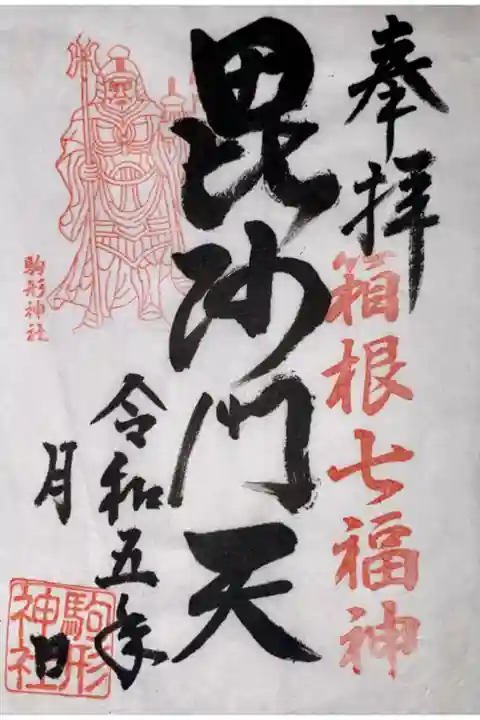 奉拝
箱根七福神
毘沙門天
駒形神社
令和五年
月
日
駒形
神社